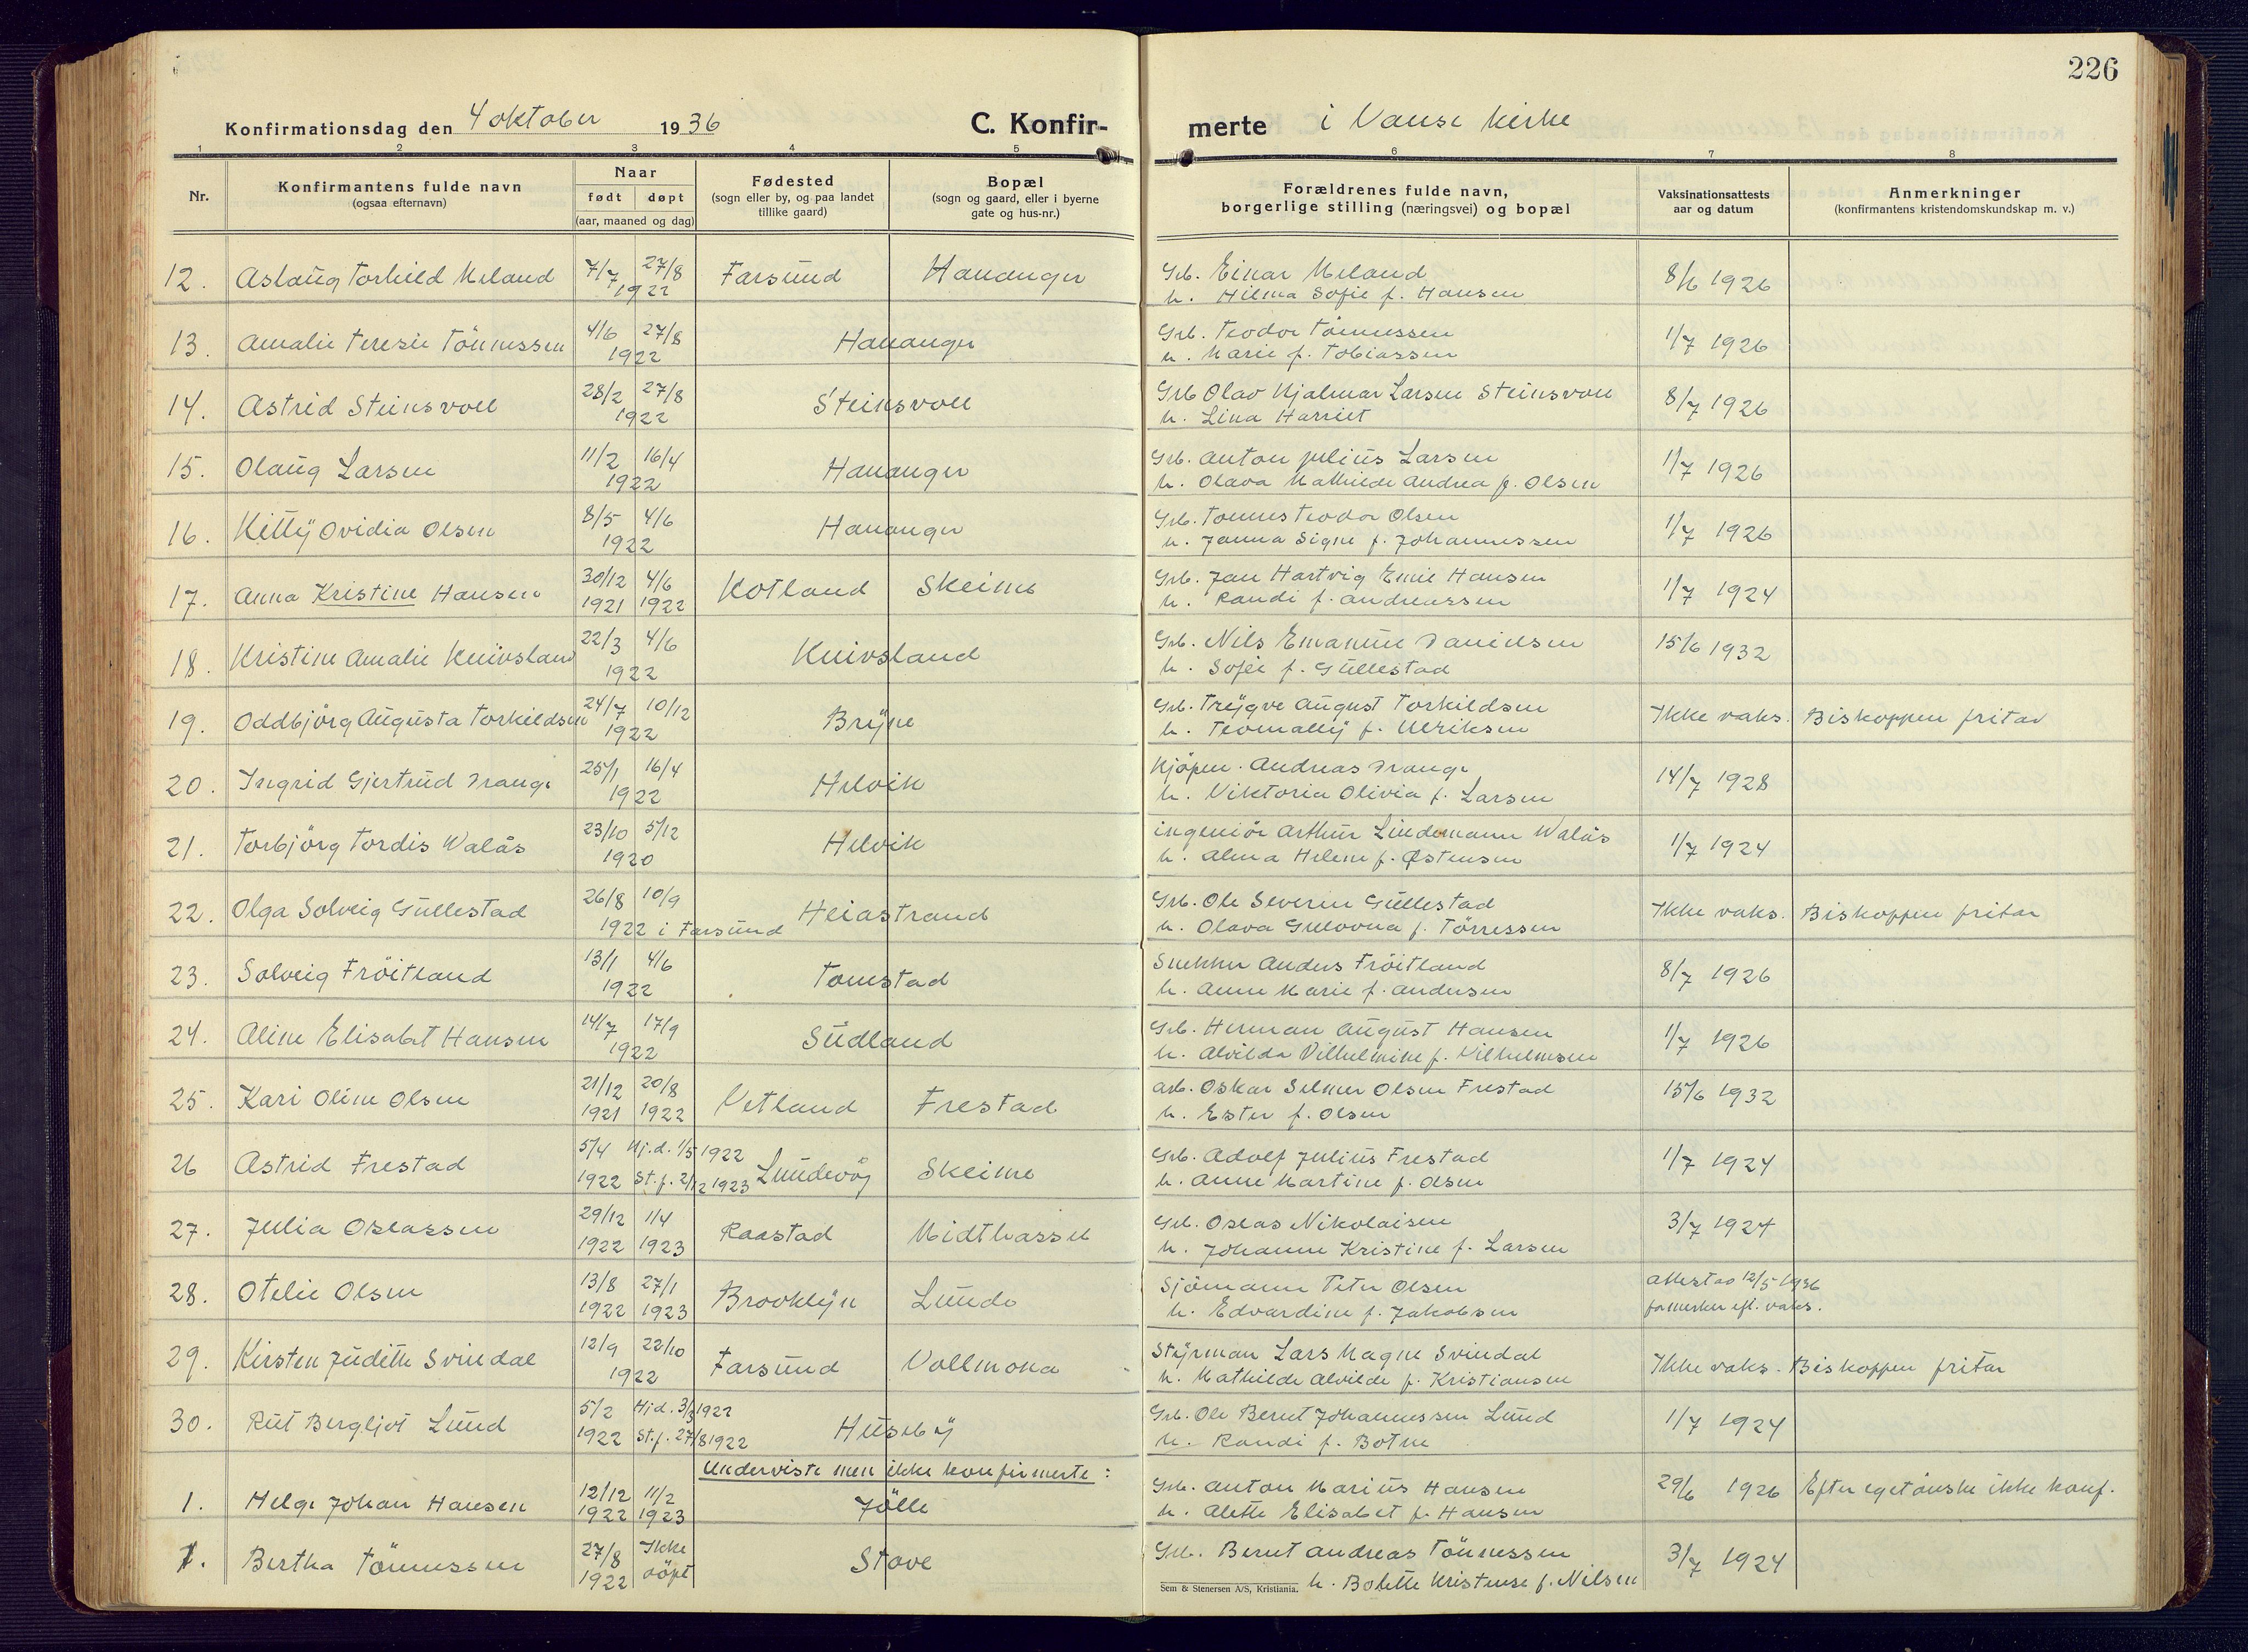 226
Konfirmationsdag den 4 oktober 1936 C. Konfir-merte i Vanse kirke
1 2 3 4 5 6 7 8
Nr.
Konfirmantens fulde navn
(ogsaa efternavn)
Naar
født døpt
(aar, maaned og dag)
Fødested
(sogn eller by, og paa landet
tillike gaard)
Bopæl
(sogn og gaard, eller i byerne
gate og hus-nr.)
Forældrenes fulde navn,
borgerlige stilling (næringsvei) og bopæl
Vaksinationsattests
aar og datum
Anmerkninger
(konfirmantens kristendomskundskap m. v.)
12. Aslaug Torhild Meland 7/7 27/8 1922 Farsund Hananger
Grb. Einar Meland
h. Hilma Sofie f. Hansen
8/6 1926
13. Amalie Teresie Tönnessen 4/6 27/8 1922 Hananger
Grb. Teodor Tönnessen
h. Marie f. Tobiassen
1/7 1926
14. Astrid Steinsvoll 28/2 27/8 1922 Steinsvoll
Grb Olav Hjalmar Larsen Steinsvoll
h. Lina Harriet
8/7 1926
15. Olaug Larsen 11/2 16/4 1922 Hananger
Grb. Anton Julius Larsen
h. Olava Mathilde Andrea f. Olsen
1/7 1926
16. Kitty Ovidia Olsen 8/5 4/6 1922 Hananger
Grb. Tönnes Teodor Olsen
h. Janna Signe f. Johannessen
1/7 1926
17. Anna Kristine Hansen 30/12 1921 4/6 1922 Kotland Skeime
Grb. Jan Hartvig Emil Hansen
h. Randi f. Andreassen
1/7 1924
18. Kristine Amalie Knivsland 22/3 4/6 1922 Knivsland
Grb. Nils Emanuel Danielsen
h. Sofie f. Gullestad
15/6 1932
19. Oddbjörg Augusta Torkildsen 24/7 10/12 1922 Bryne
Grb. Trygve August Torkildsen
h. Teomally f. Ulriksen
Ikke vaks. Biskoppen fritar
20. Ingrid Gjertrud Drange 25/1 16/4 1922 Helvik
Kjöpm. Andreas Drange
h. Viktoria Olivia f. Larsen
14/7 1928
21. Torbjörg Tordis Walås 23/10 5/12 1920 Helvik
ingeniör Arthur Lindemann Walås
h. Alma Helene f. Østensen
1/7 1924
22. Olga Solveig Gullestad 26/8 10/9 1922 i Farsund Heiastrand
Grb. Ole Severin Gullestad
h. Olava Gulovna f. Törressen
Ikke vaks. Biskoppen fritar
23. Solveig Fröitland 13/1 4/6 1922 Tomstad
Snekker Anders Fröitland
h. Anne Marie f. Andersen
8/7 1926
24. Aline Elisabet Hansen 14/7 17/9 1922 Sudland
Grb. Herman August Hansen
h. Alvilda Vilhelmine f. Vilhelmsen
1/7 1926
25. Kari Oline Olsen 21/12 1921 20/8 1922 Vetland Frestad
Arb. Oskar Selmer Olsen Frestad
h. Ester f. Olsen
15/6 1932
26 Astrid Frestad 5/4 1922 Hj.d. 1/5 1922 St.f. 2/12 1923 Lundevåg Skeime
Grb. Adolf Julius Frestad
h. Anne Martine f. Olsen
1/7 1924
27. Julia Oseassen 29/12 1922 1/4 1923 Raastad Midthassel
Grb. Oseas Nikolaisen
h. Johanne Kristine f. Larsen
3/7 1924
28. Otelie Olsen 13/8 1922 27/1 1923 Brooklyn Lunde
Sjömann Peter Olsen
h. Edvardine f. Jakobsen
Attest av 12/5 1936
eft. vaks.
29. Kirsten Judith Svindal 12/9 22/10 1922 Farsund Vollmona
Styrman Lars Magne Svindal
h. Mathilde Alvilde f. Kristiansen
Ikke vaks. Biskoppen fritar
30. Rut Bergljot Lund 5/2 1922 Hj.d. 3/3 1922 St.f. 27/8 1922 Huseby
Grb. Ole Bernt Johannessen Lund
h. Randi f. Botne
1/7 1924
Underviste men ikke konfirmerte:
1. Helge Johan Hansen 12/12 1922 11/2 1923 Jölle
Grb. Anton Marius Hansen
h. Alette Elisabet f. Hansen
29/6 1926 Efter eget önske ikke konf.
1. Bertha Tönnessen 27/8 1922 Ikke döpt Stave
Grb. Bernt Andreas Tönnessen
h. Bolette Kristense f. Nilsen
3/7 1924
Sem & Stenersen A/S, Kristiania.